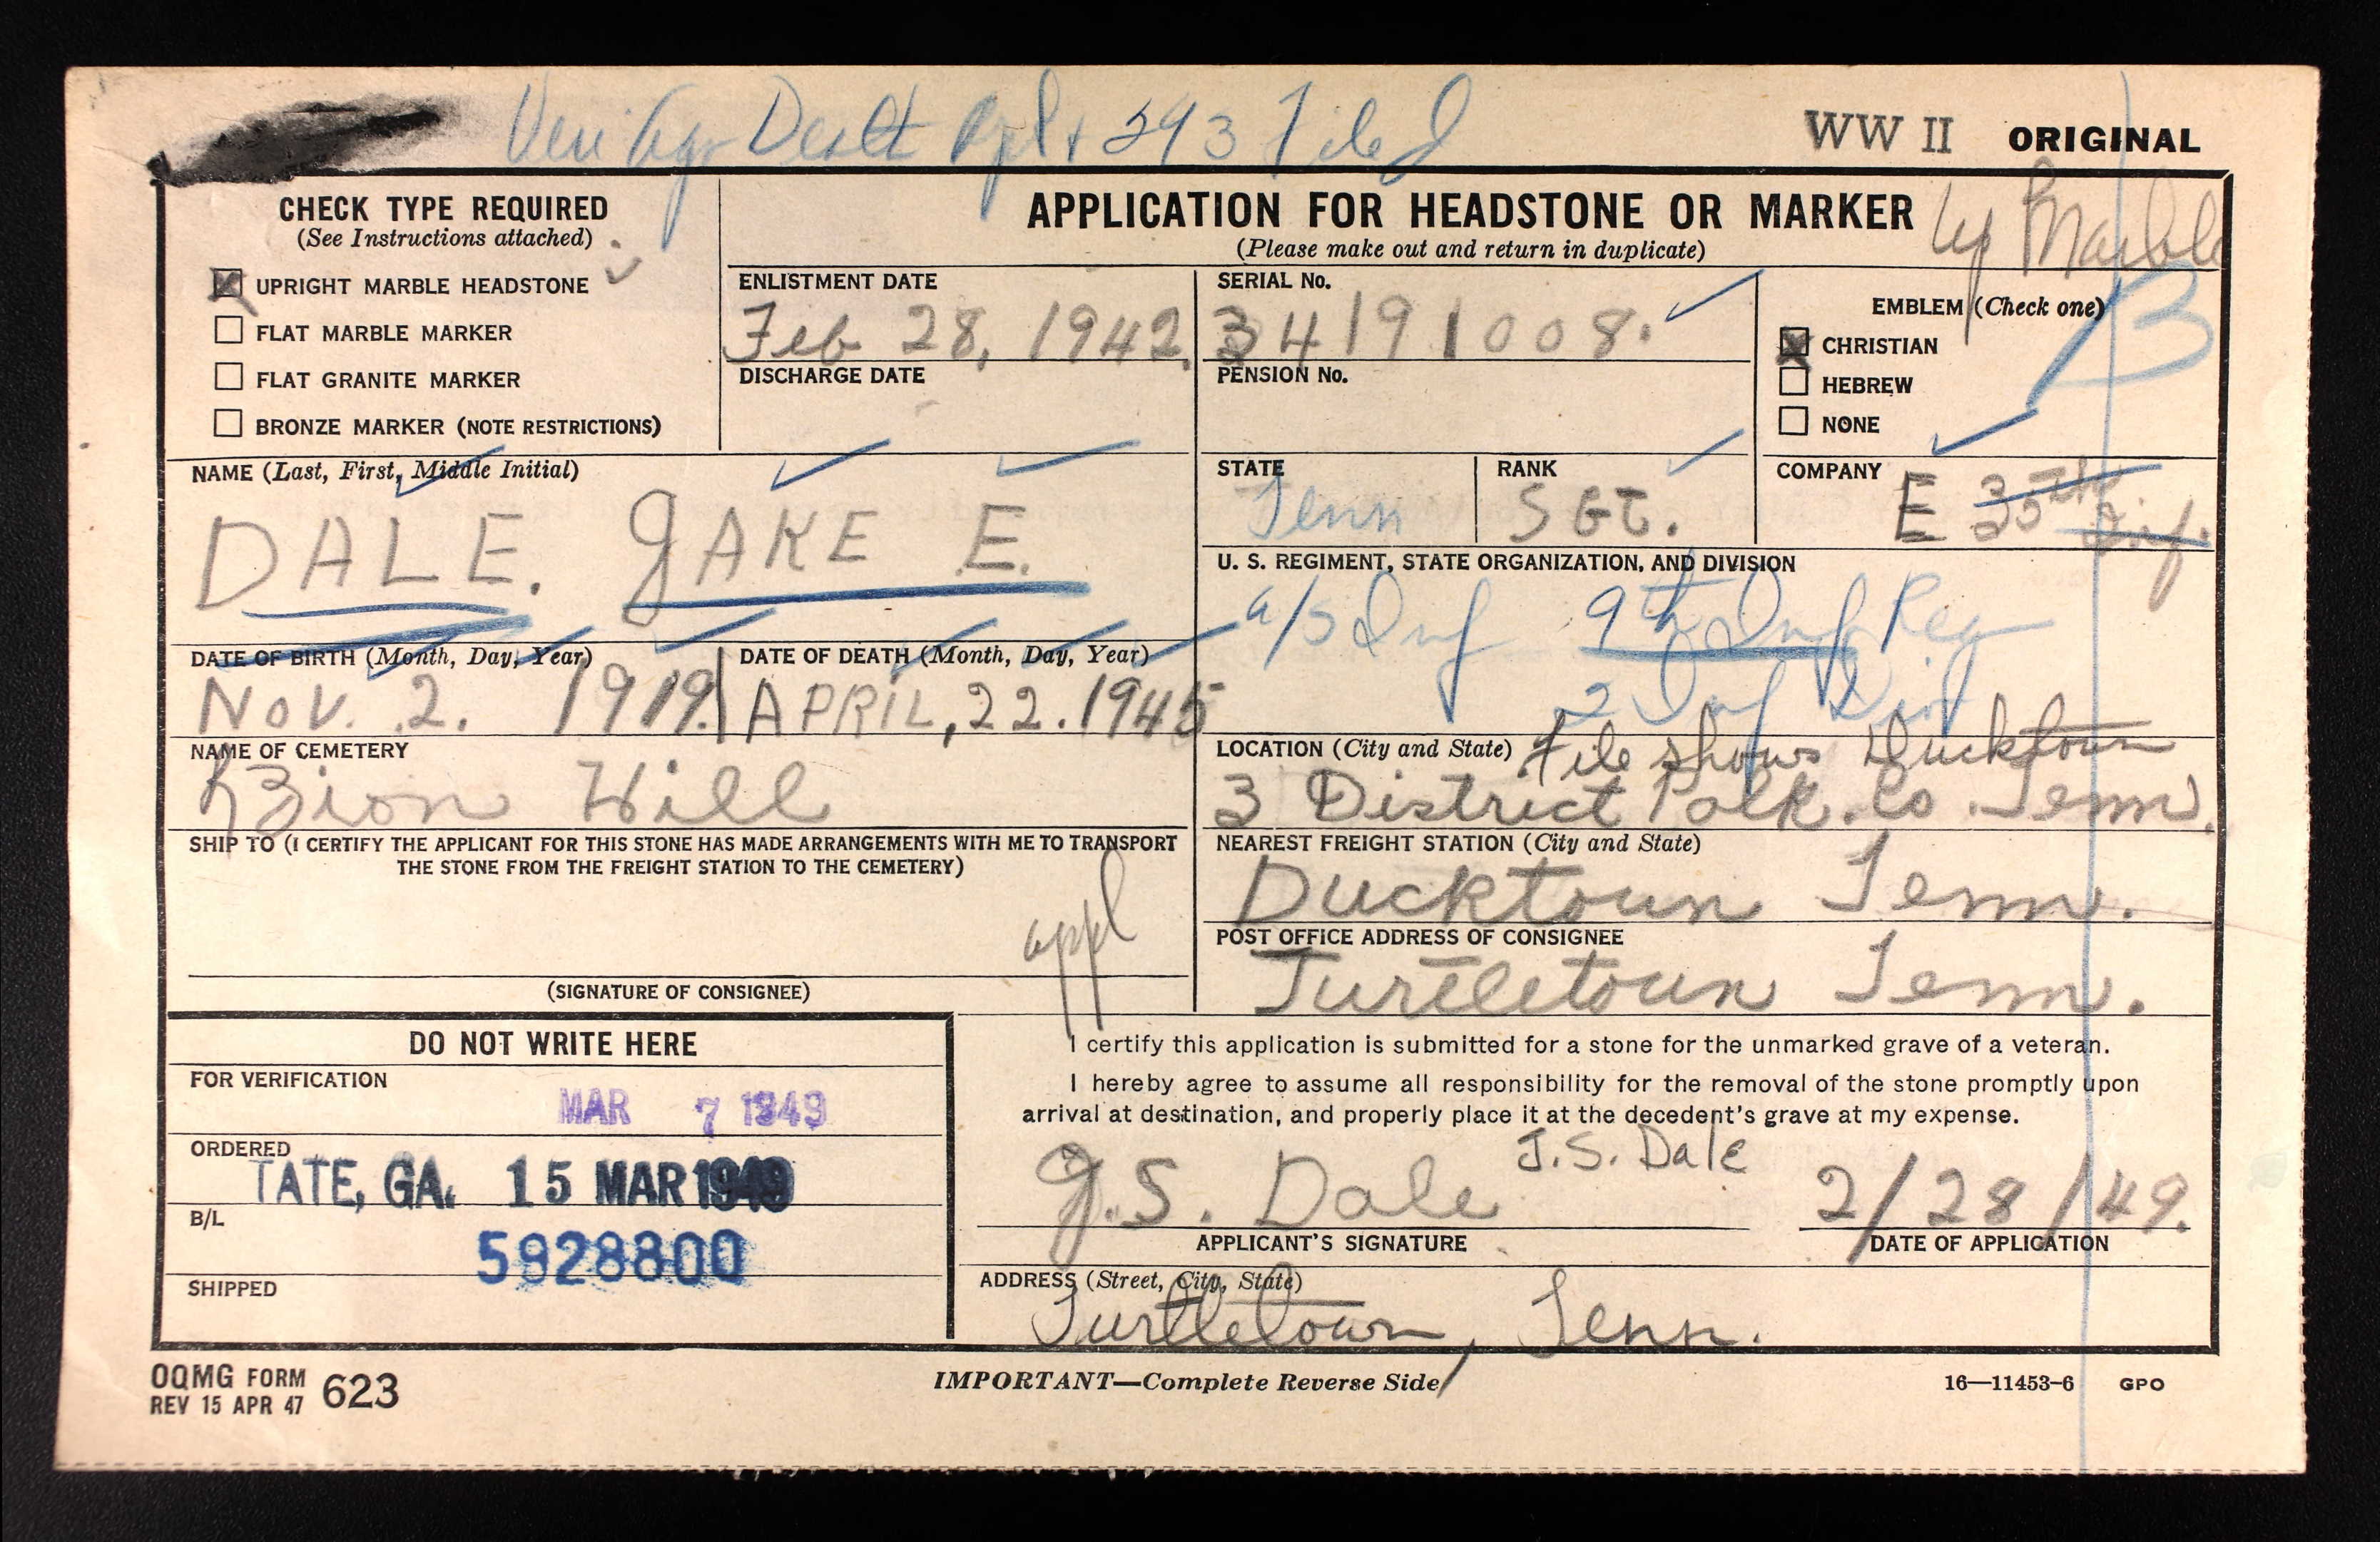 WW II ORIGINAL
293 Filed
CHECK TYPE REQUIRED
(See Instructions attached)
UPRIGHT MARBLE HEADSTONE
FLAT MARBLE MARKER
FLAT GRANITE MARKER
BRONZE MARKER (NOTE RESTRICTIONS)
APPLICATION FOR HEADSTONE OR MARKER
(Please make out and return in duplicate)
Up Marble
ENLISTMENT DATE
Feb 28, 1942.
DISCHARGE DATE
SERIAL No.
34191008.
PENSION No.
EMBLEM (Check one)
CHRISTIAN
HEBREW
NONE
B
NAME (Last, First, Middle Initial)
DALE. JAKE E.
STATE
Tenn
RANK
SGT.
COMPANY
E 35th Inf.
U. S. REGIMENT, STATE ORGANIZATION, AND DIVISION
Inf 9th Inf Reg
2 Inf Div
DATE OF BIRTH (Month, Day, Year)
Nov. 2. 1919.
DATE OF DEATH (Month, Day, Year)
APRIL, 22. 1945
NAME OF CEMETERY
Zion Hill
LOCATION (City and State)
File shows Ducktown
3 District Polk. Co. Tenn.
SHIP TO (I CERTIFY THE APPLICANT FOR THIS STONE HAS MADE ARRANGEMENTS WITH ME TO TRANSPORT
THE STONE FROM THE FREIGHT STATION TO THE CEMETERY)
appl
(SIGNATURE OF CONSIGNEE)
NEAREST FREIGHT STATION (City and State)
Ducktown Tenn.
POST OFFICE ADDRESS OF CONSIGNEE
Turtletown Tenn.
DO NOT WRITE HERE
FOR VERIFICATION
MAR 7 1949
ORDERED
TATE, GA. 15 MAR 1949
B/L
5928800
SHIPPED
I certify this application is submitted for a stone for the unmarked grave of a veteran.
I hereby agree to assume all responsibility for the removal of the stone promptly upon
arrival at destination, and properly place it at the decedent's grave at my expense.
J.S. Dale
J.S. Dale
2/28/49.
APPLICANT'S SIGNATURE
DATE OF APPLICATION
ADDRESS (Street, City, State)
Turtletown, Tenn.
OQMG FORM 623
REV 15 APR 47
IMPORTANT—Complete Reverse Side
16—11453-6 GPO